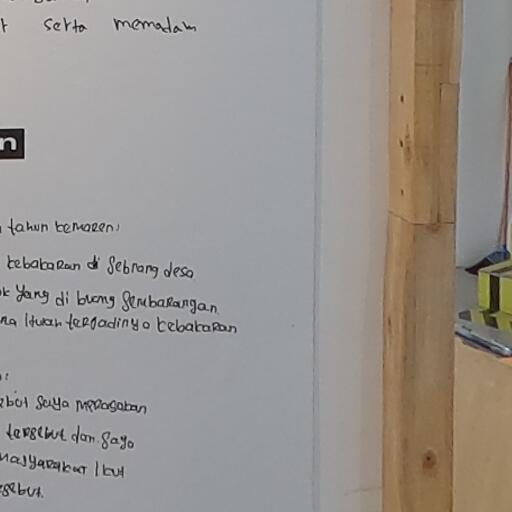 serta memadam
n
tahun kemaren:
kebakaran di sebrang desa
k yang di buang sembarangan
na ituah terjadinya kebakaran
:
ebut saya merasakan
tersebut dan saya
masyarakat ikut
sebut.